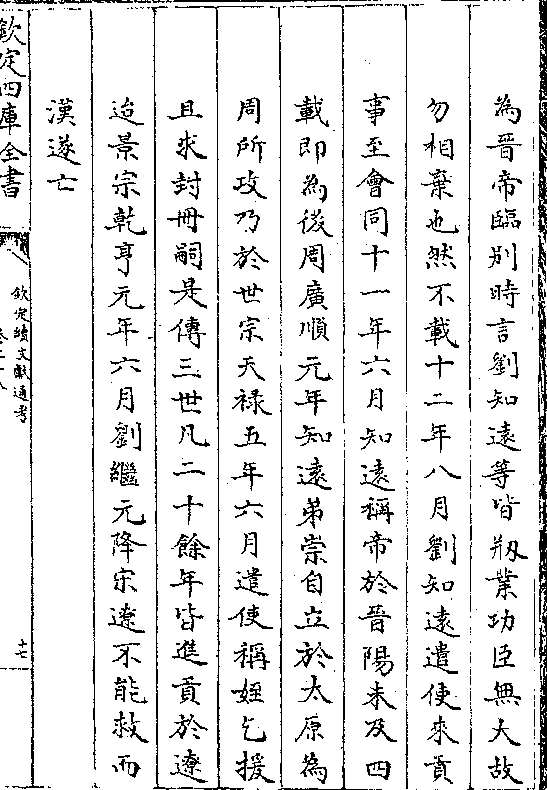 為晉帝臨别時言劉知遠等皆剏業功臣無大故
勿相棄也然不載十二年八月劉知遠遣使來貢
事至會同十一年六月知遠稱帝於晉陽未及四
載即為後周廣順元年知遠弟崇自立於太原為
周所攻乃於世宗天祿五年六月遣使稱姪乞援
且求封冊嗣是傳三世凡二十餘年皆進貢於遼
迨景宗乾亨元年六月劉繼元降宋遼不能救而
漢遂亡
欽定四庫全書
欽定續文獻通考
卷二十八
十七